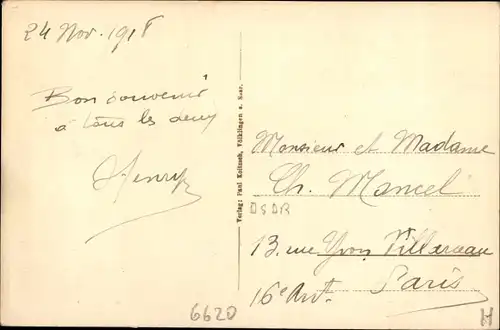 24 Nov. 1918
Bon souvenir
à tous les deux
Henry
Verlag: Paul Koltzsch, Völklingen a. Saar.
Monsieur et Madame
Ch. Mancel
DSDR
13. rue Yvon Villarceau
16e Arrt.
Paris
6620
H